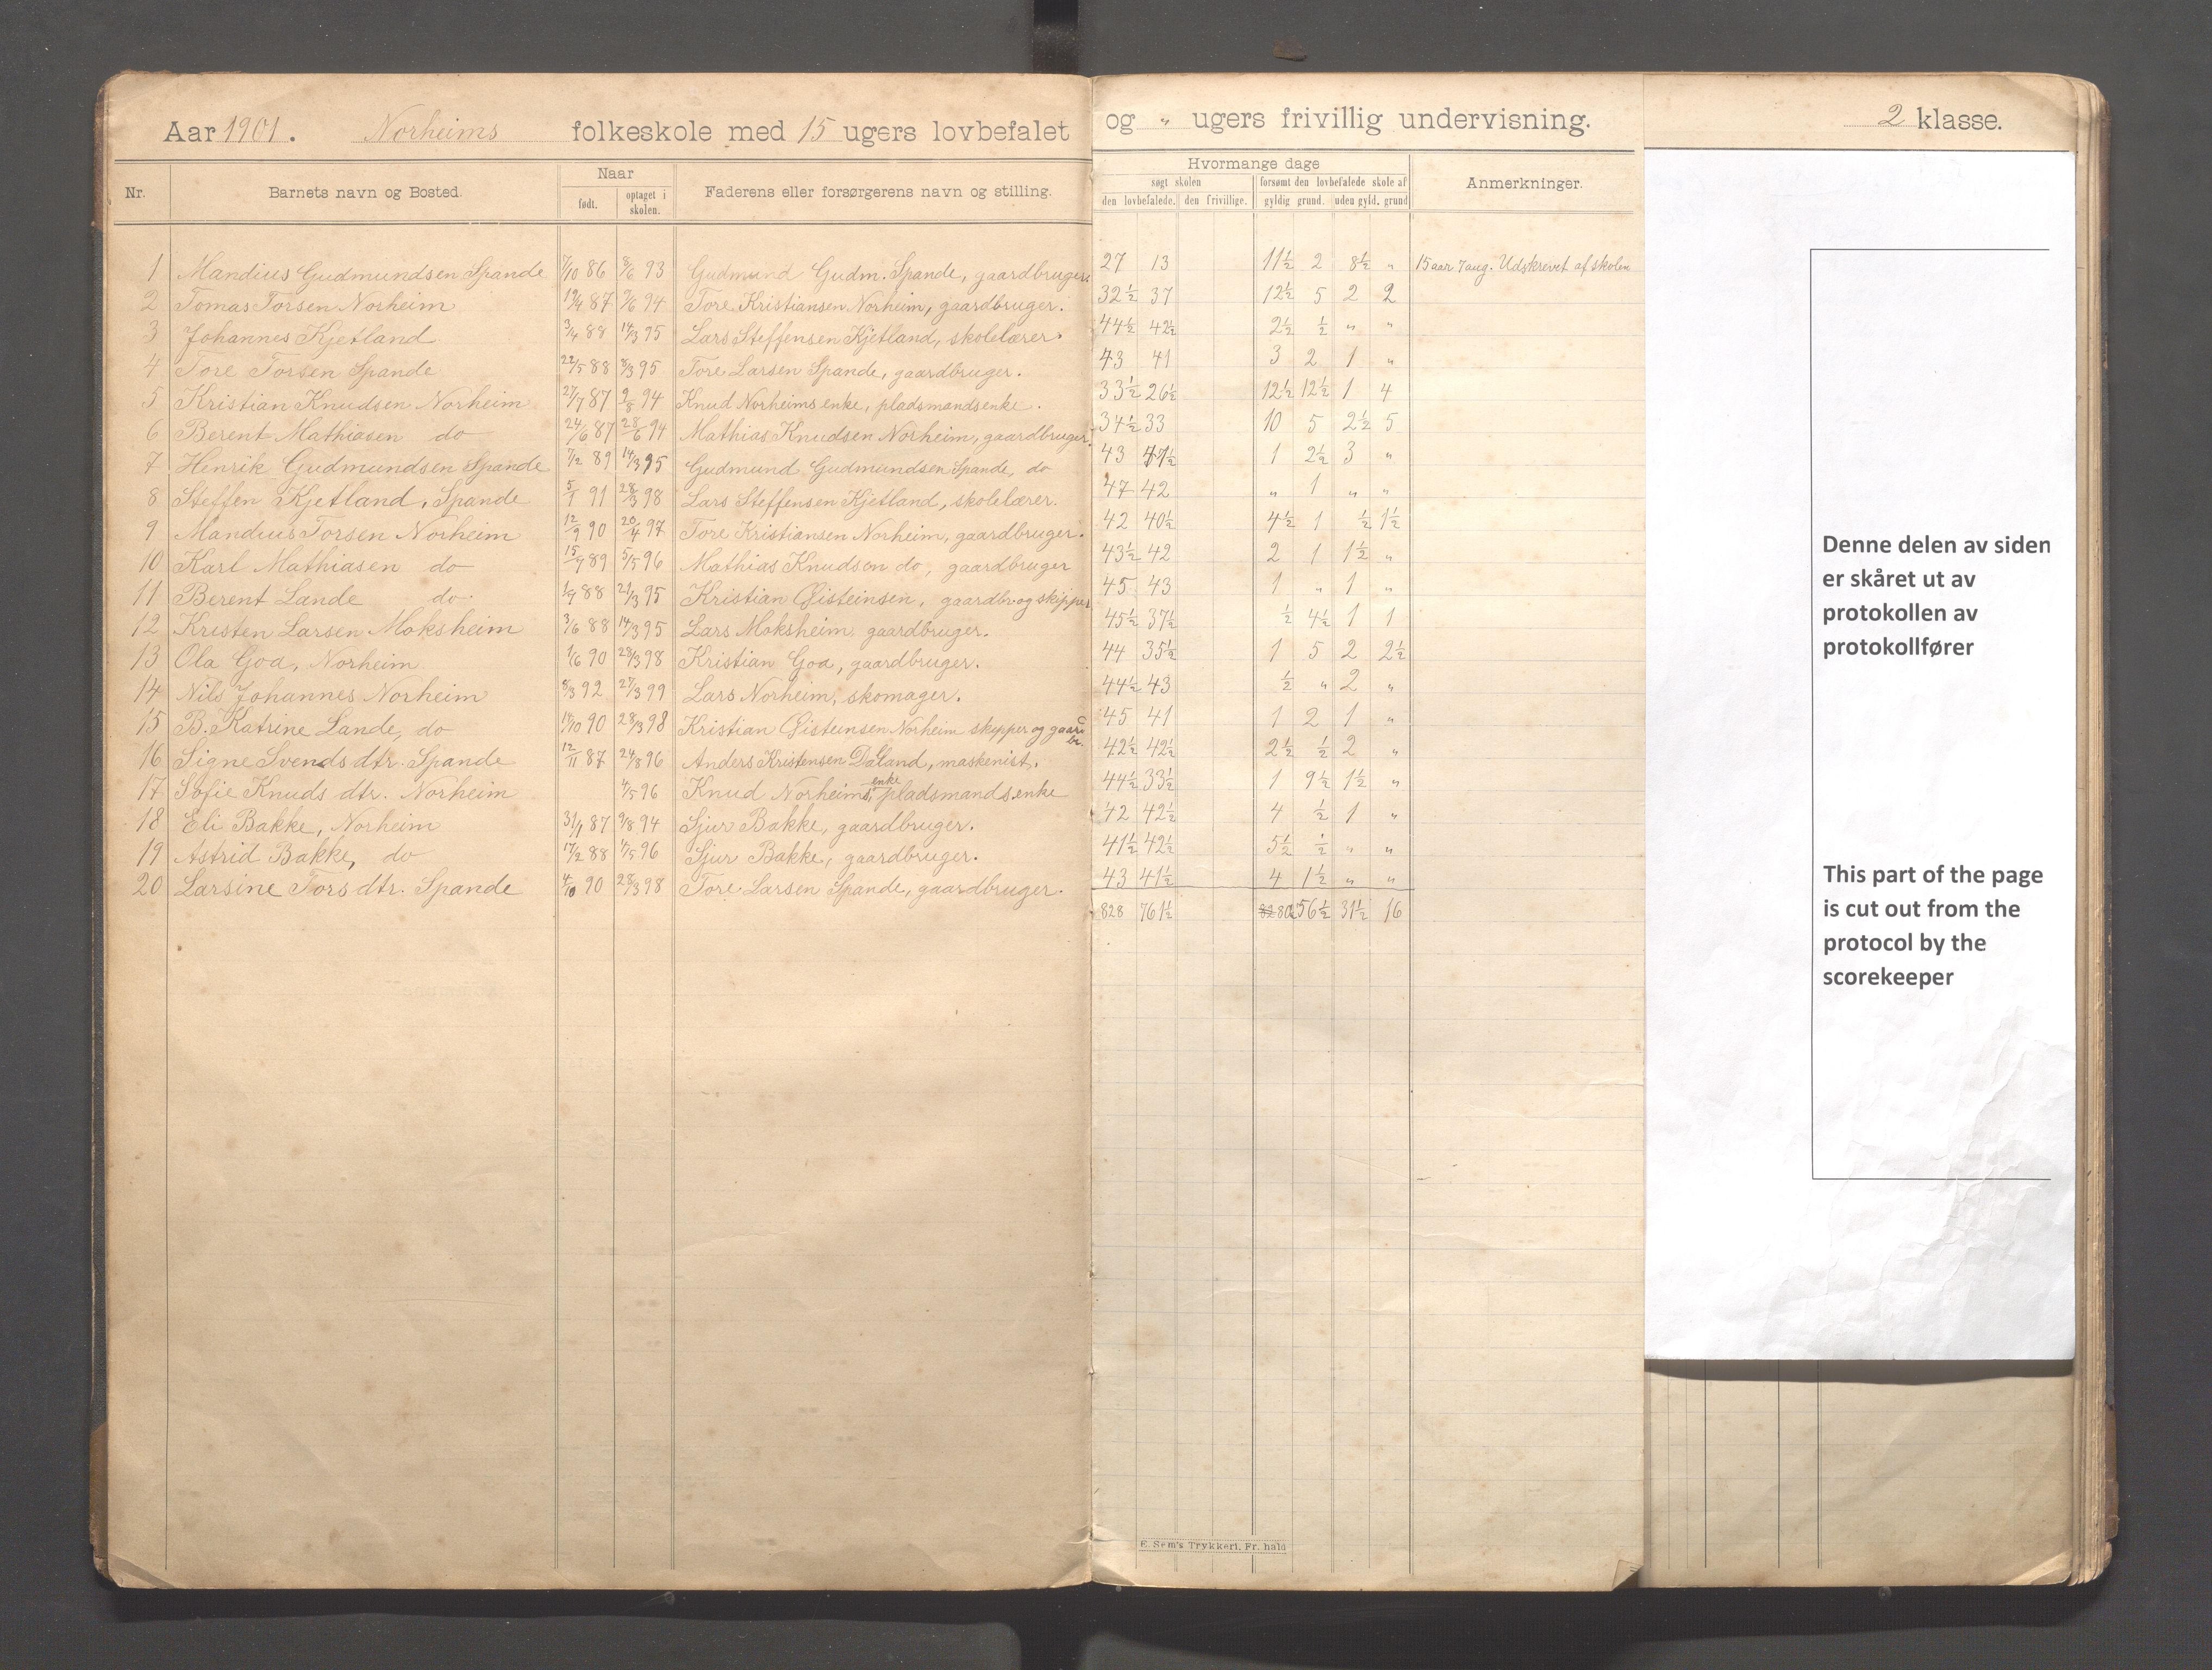 Aar 1901. Norheims folkeskole med 15 ugers lovbefalet og " ugers frivillig undervisning. 2 klasse.
Nr. Barnets navn og Bosted. Naar født. optaget i skolen. Faderens eller forsørgerens navn og stilling. Hvormange dage søgt skolen den lovbefalede. den frivillige. forsømt den lovbefalede skole af gyldig grund. uden gyld. grund Anmerkninger.
1 Mandius Gudmundsen Spande 7/10 86 8/6 93 Gudmund Gudm. Spande, gaardbruger. 27 13 11½ 2 8½ " 15 aar 7 aug. Udskrevet af skolen
2 Tomas Torsen Norheim 19/4 87 9/6 94 Tore Kristiansen Norheim, gaardbruger. 32½ 37 12½ 5 2 2
3 Johannes Kjetland 3/4 88 14/3 95 Lars Steffensen Kjetland, skolelærer. 44½ 42½ 2½ ½ " "
4 Tore Torsen Spande 22/5 88 8/3 95 Tore Larsen Spande, gaardbruger. 43 41 3 2 1 "
5 Kristian Knudsen Norheim 27/7 87 9/8 94 Knud Norheims enke, pladsmandsenke. 33½ 26½ 12½ 12½ 1 4
6 Berent Mathiasen do 24/6 87 28/6 94 Mathias Knudsen Norheim, gaardbruger. 34½ 33 10 5 2½ 5
7 Henrik Gudmundsen Spande 7/2 89 14/3 95 Gudmund Gudmundsen Spande, do 43 41½ 1 2½ 3 "
8 Steffen Kjetland, Spande 5/1 91 28/3 98 Lars Steffensen Kjetland, skolelærer. 47 42 " 1 " "
9 Mandius Torsen Norheim 12/9 90 20/4 97 Tore Kristiansen Norheim, gaardbruger. 42 40½ 4½ 1 ½ 1½
10 Karl Mathiasen do 15/7 89 5/5 96 Mathias Knudsen do, gaardbruger 43½ 42 2 1 1½ "
11 Berent Lande do. 1/9 88 21/3 95 Kristian Øisteinsen, gaardbr og skipper 45 43 1 " 1 "
12 Kristen Larsen Moksheim 3/6 88 14/3 95 Lars Moksheim gaardbruger. 45½ 37½ ½ 4½ 1 1
13 Ola Goa, Norheim 1/6 90 28/3 98 Kristian Goa, gaardbruger. 44 35½ 1 5 2 2½
14 Nils Johannes Norheim 8/3 92 27/3 99 Lars Norheim, skomager. 44½ 43 ½ " 2 "
15 B. Katrine Lande, do 14/10 90 28/3 98 Kristian Øisteinsen Norheim skipper og gaardbr. 45 41 1 2 1 "
16 Signe Svends dtr. Spande 12/11 87 24/8 96 Anders Kristensen Daland, maskenist. 42½ 42½ 2½ ½ 2 "
17 Sofie Knuds dtr. Norheim 4/5 96 Knud Norheims enke, pladsmandsenke 44½ 33½ 1 9½ 1½ "
18 Eli Bakke, Norheim 31/1 87 9/8 94 Sjur Bakke, gaardbruger. 42 42½ 4 ½ 1 "
19 Astrid Bakke, do 17/2 88 4/5 96 Sjur Bakke, gaardbruger. 41½ 42½ 5½ ½ " "
20 Larsine Tors dtr. Spande 4/10 90 28/3 98 Tore Larsen Spande, gaardbruger. 43 41½ 4 1½ " "
828 761½ 56½ 31½ 16
E. Sem's Trykkeri, Fr. hald
Denne delen av siden
er skåret ut av
protokollen av
protokollfører
This part of the page
is cut out from the
protocol by the
scorekeeper